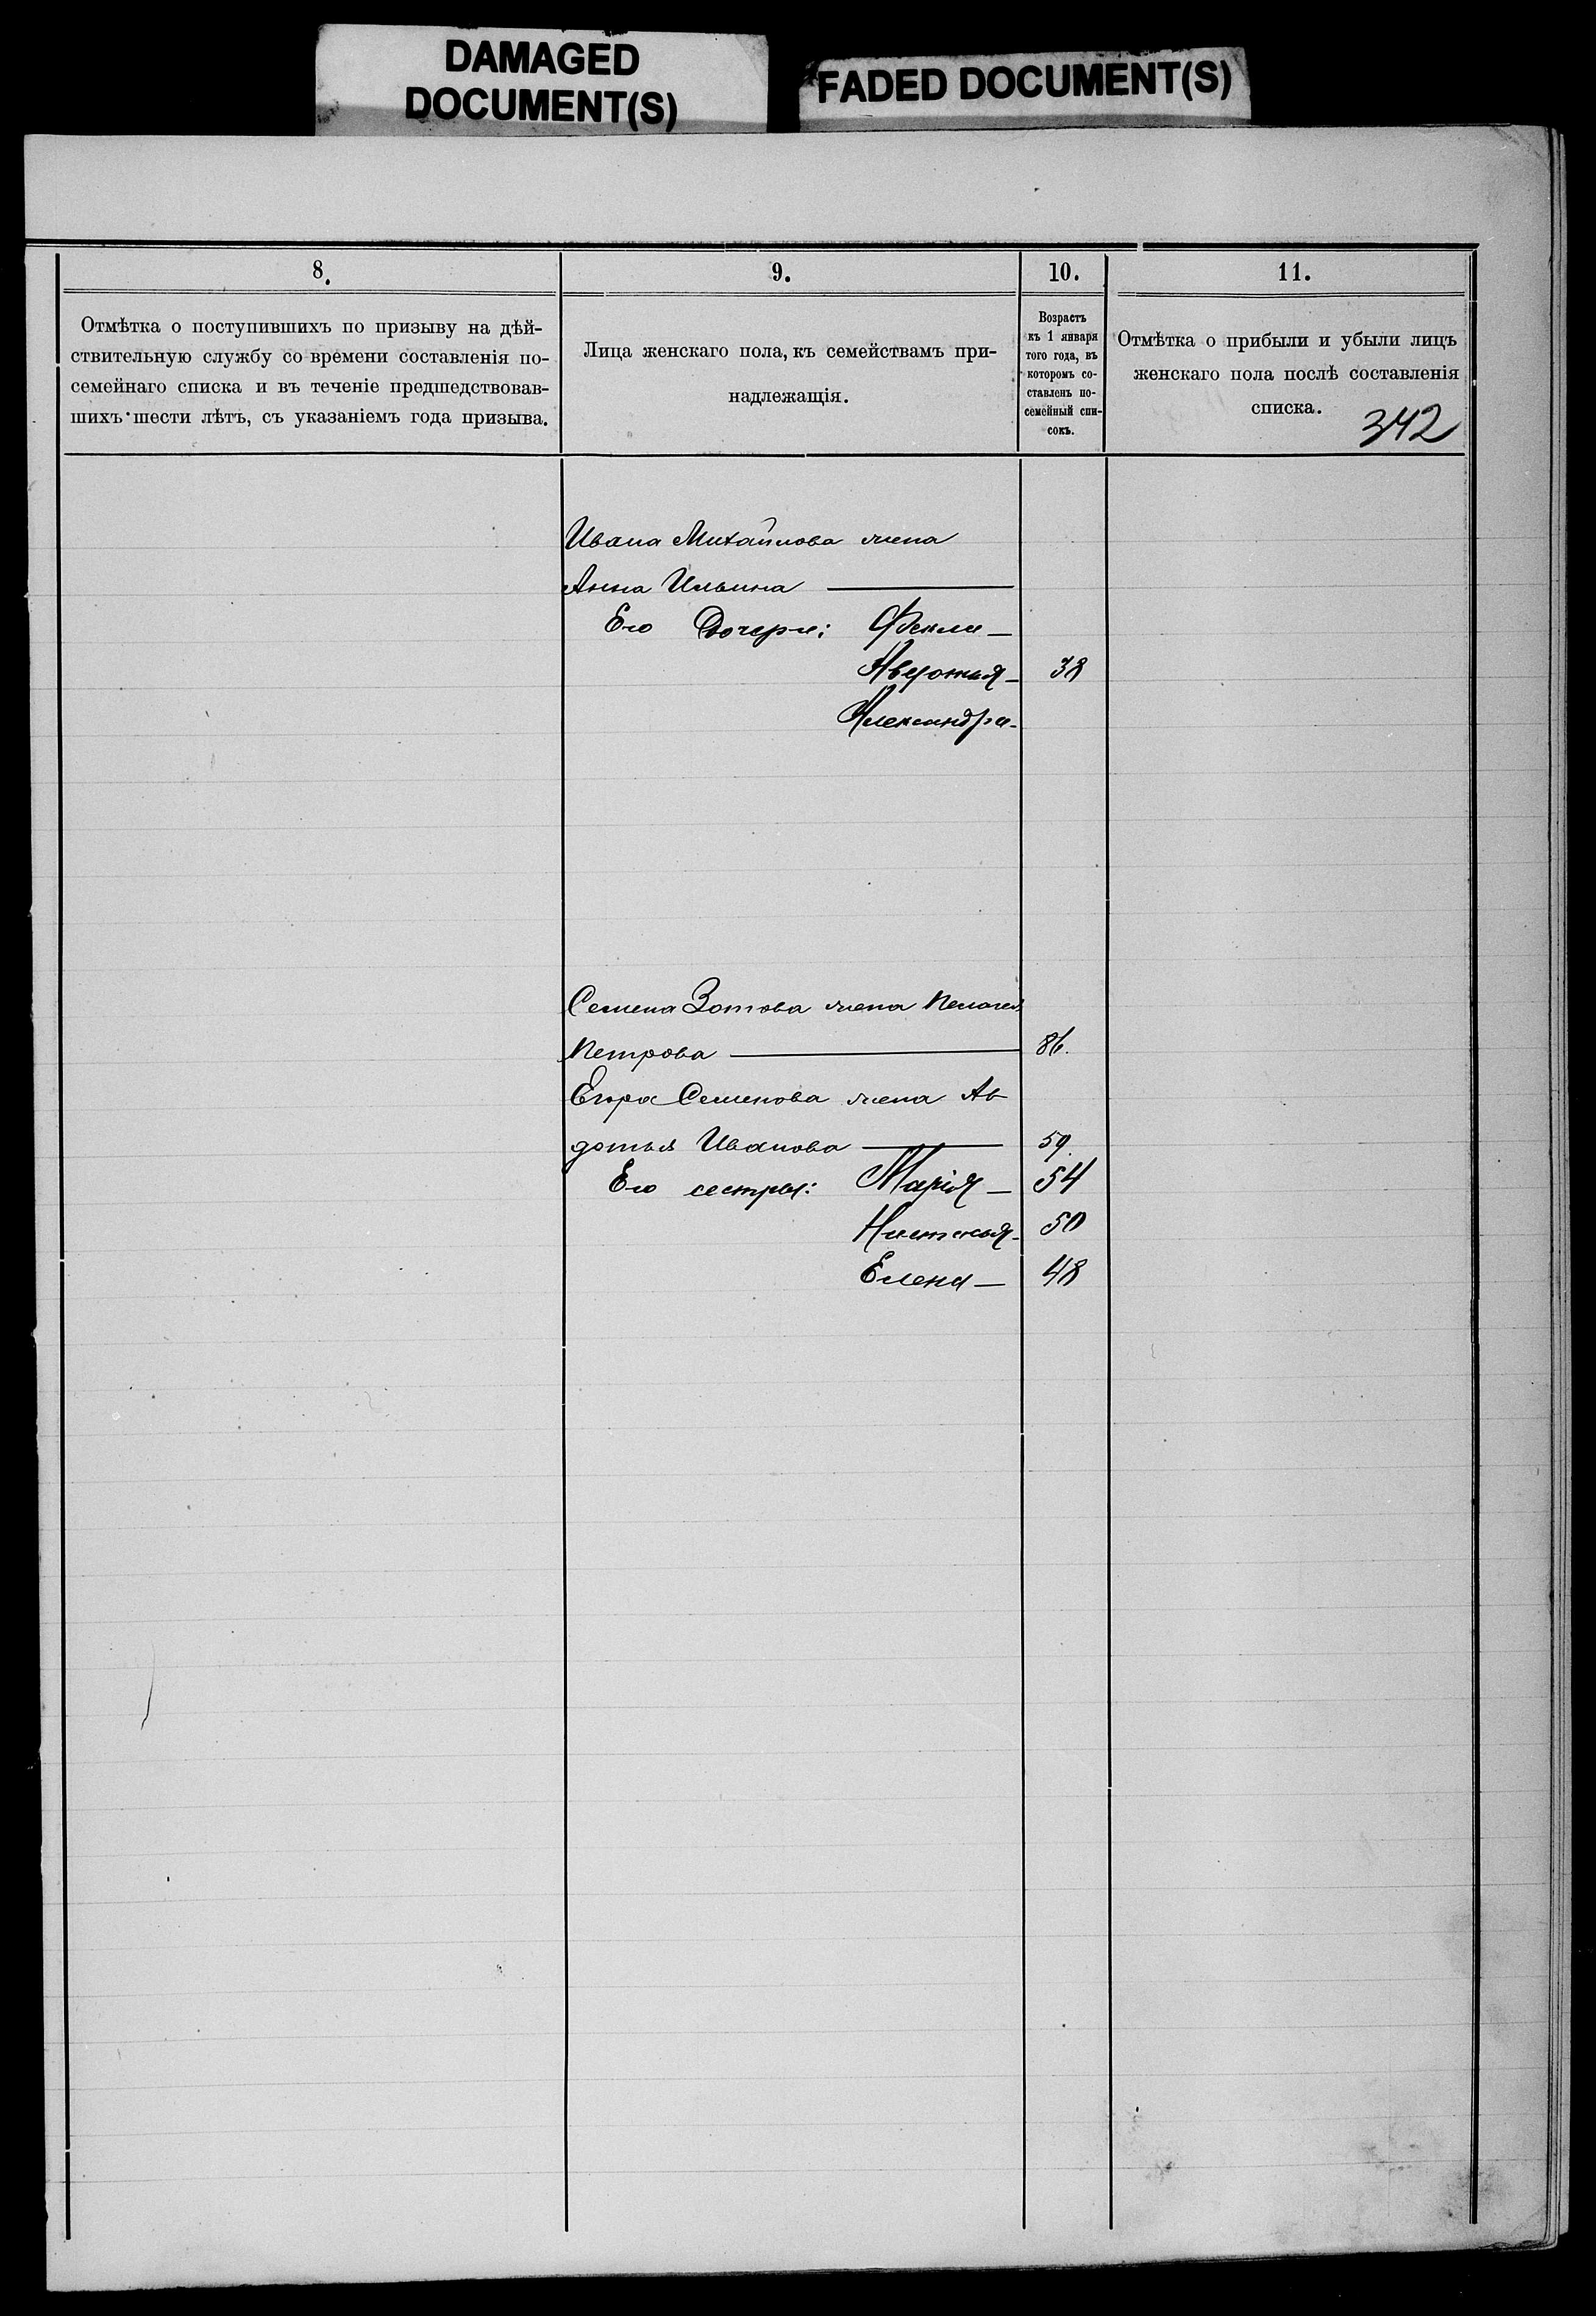 DAMAGED
DOCUMENT(S)
FADED DOCUMENT(S)
8.
Отмѣтка о поступившихъ по призыву на дѣй-
ствительную службу со времени составленія по-
семейнаго списка и въ теченіе предшедствовав-
шихъ шести лѣтъ, съ указаніемъ года призыва.
9.
Лица женскаго пола, къ семействамъ при-
надлежащія.
10.
Возрастъ
къ 1 января
того года, въ
которомъ со-
ставленъ по-
семейный спи-
сокъ.
11.
Отмѣтка о прибыли и убыли лицъ
женскаго пола послѣ составленія
списка.
342
Ивана Михайлова жена
Анна Ильина —
Его Дочери: Фекла —
Авдотья — 38
Александра —
Семена Зотова жена Пелагея
Петрова — 86.
Егора Семенова жена Ав
дотья Иванова — 59.
Его сестры: Марія — 54
Настасья — 50
Елена — 48